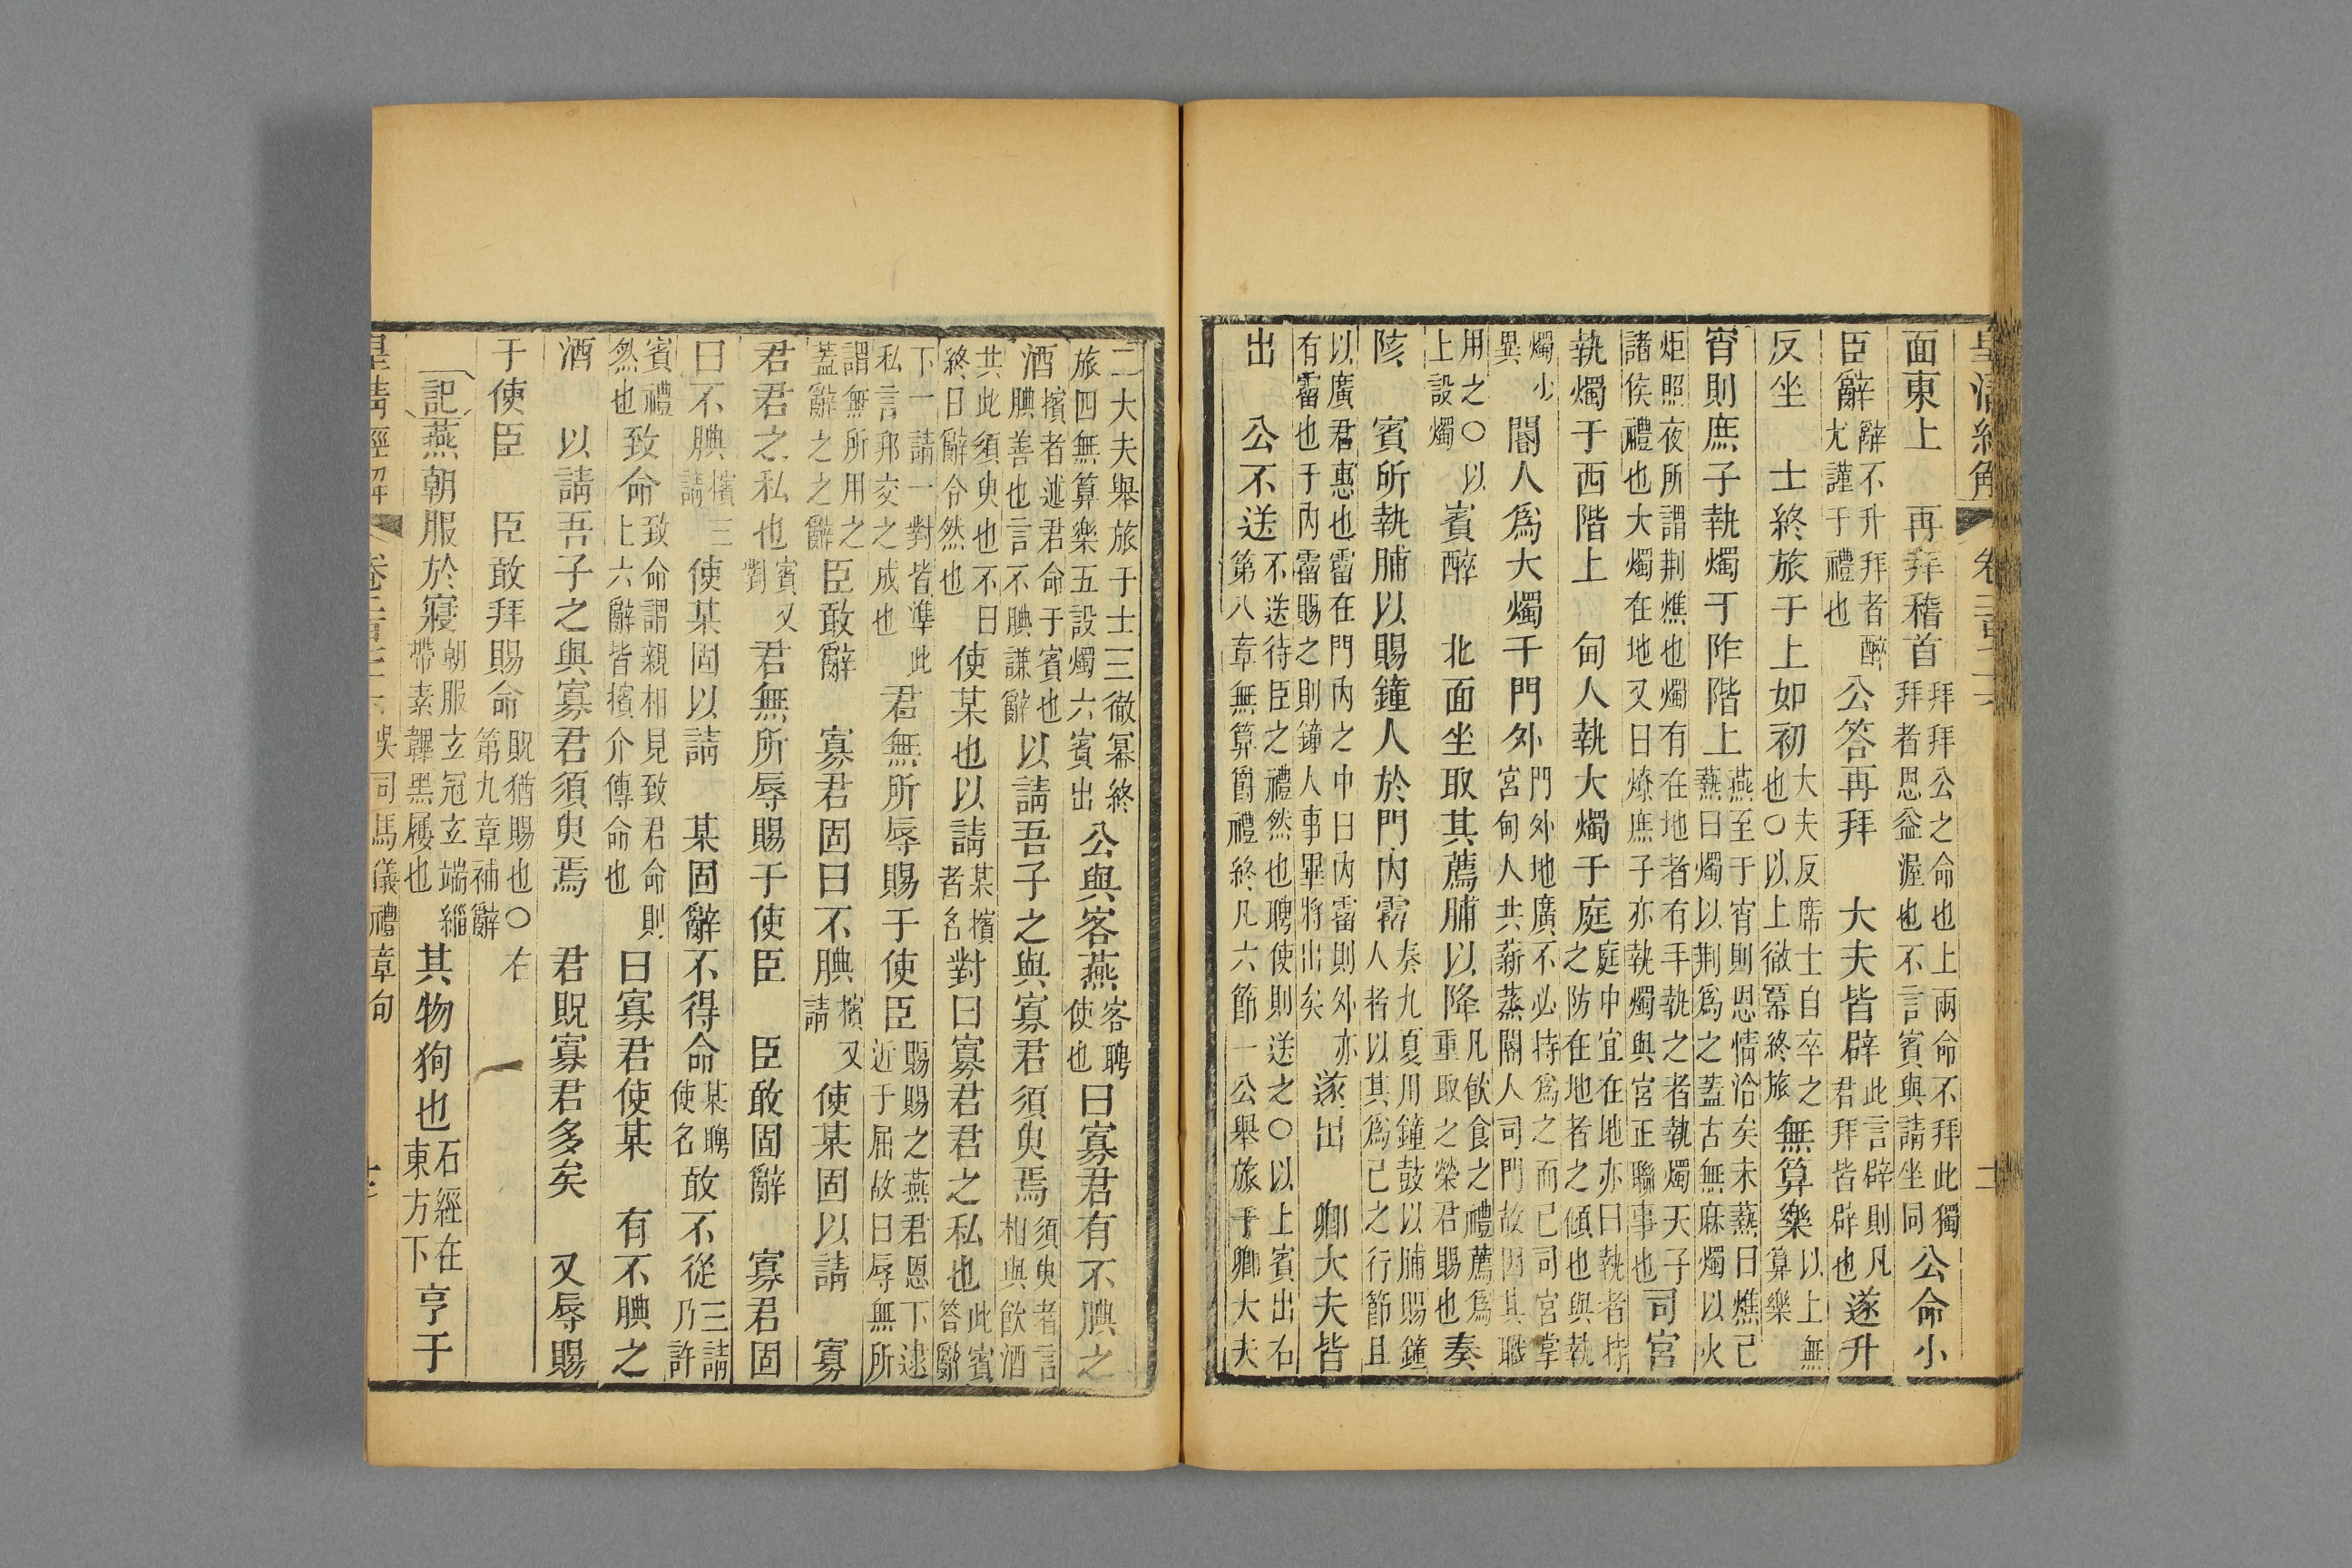 皇清經解
面東上　再拜稽首拜拜公之命也上兩命不拜此獨拜者恩益渥也不言賓與請坐同公命小
臣辭辭不升拜者醉尤謹于禮也公答再拜　大夫皆辟此言辟則凡君拜皆辟也遂升
反坐　士終旅于上如初大夫反席士自卒之也○以上徹冪終旅無算樂以上無算樂
宵則庶子執燭于阼階上燕至于宵則恩情洽矣未爇曰燋已爇曰燭以荆爲之蓋古無麻燭以火
炬照夜所謂荆燋也燭有在地者有手執之者執燭天子諸侯禮也大燭在地又曰燎庶子亦執燭與宮正聯事也司宮
執燭于西階上　甸人執大燭于庭庭中宜在地亦曰執者持之防在地者之傾也與執
燭少異　閽人爲大燭于門外門外地廣不必持爲之而已司宮掌宮甸人共薪蒸閽人司門故因其職
用之○以上設燭　賓醉　北面坐取其薦脯以降凡飲食之禮薦爲重取之榮君賜也奏
陔　賓所執脯以賜鐘人於門內霤奏九夏用鐘鼓以脯賜鐘人者以其爲己之行節且
以廣君惠也霤在門內之中曰內霤則外亦有霤也于內霤賜之則鐘人事畢將出矣遂出　卿大夫皆
出　公不送不送待臣之禮然也聘使則送之○以上賓出右第八章無算爵禮終凡六節一公舉旅乎卿大夫
二大夫舉旅于士三徹冪終旅四無算樂五設燭六賓出　公與客燕客聘使也曰寡君有不腆之
酒擯者述君命于賓也腆善也言不腆謙辭以請吾子之與寡君須臾焉須臾者言相與飲酒
共此須臾也不曰終日辭令然也使某也以請某擯者名對曰寡君君之私也此賓答辭
下一請一對皆準此私言邦交之成也君無所辱賜于使臣賜賜之燕君恩下逮近于屈故曰辱無所
謂無所用之蓋辭之之辭臣敢辭　寡君固曰不腆擯又請使某固以請　寡
君君之私也賓又對君無所辱賜于使臣　臣敢固辭　寡君固
曰不腆擯三請使某固以請　某固辭不得命某聘使名敢不從三請乃許
賓禮然也致命致命謂親相見致君命則上六辭皆擯介傳命也曰寡君使某　有不腆之
酒　以請吾子之與寡君須臾焉　君貺寡君多矣　又辱賜
于使臣　臣敢拜賜命貺猶賜也○右第九章補辭
記燕朝服於寢朝服玄冠玄端緇帶素韠黑屨也其物狗也石經在東方下亨于
皇清經解　吳司馬儀禮章句